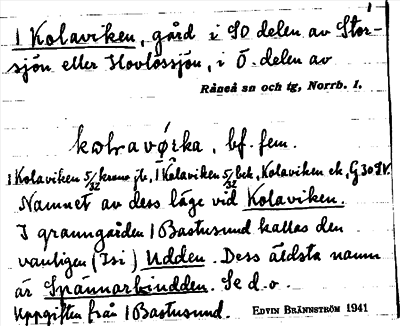 1 Kolaviken, gård i SO delen av Stor-
sjön eller Hovlössjön, i Ö. delen av
Råneå sn och tg, Norrb. l.
bf. fem.
1 Kolaviken 5/32 krono jb, 1 Kolaviken 5/32 bek, Kolaviken ek, G 30 SV.
Namnet av dess läge vid Kolaviken.
I granngården 1 Bastusund kallas den
vanligen (Isi) Udden. Dess äldsta namn
är Spännarkindden. Se d.o.
Uppgiften från 1 Bastusund. EDVIN BRÄNNSTRÖM 1941